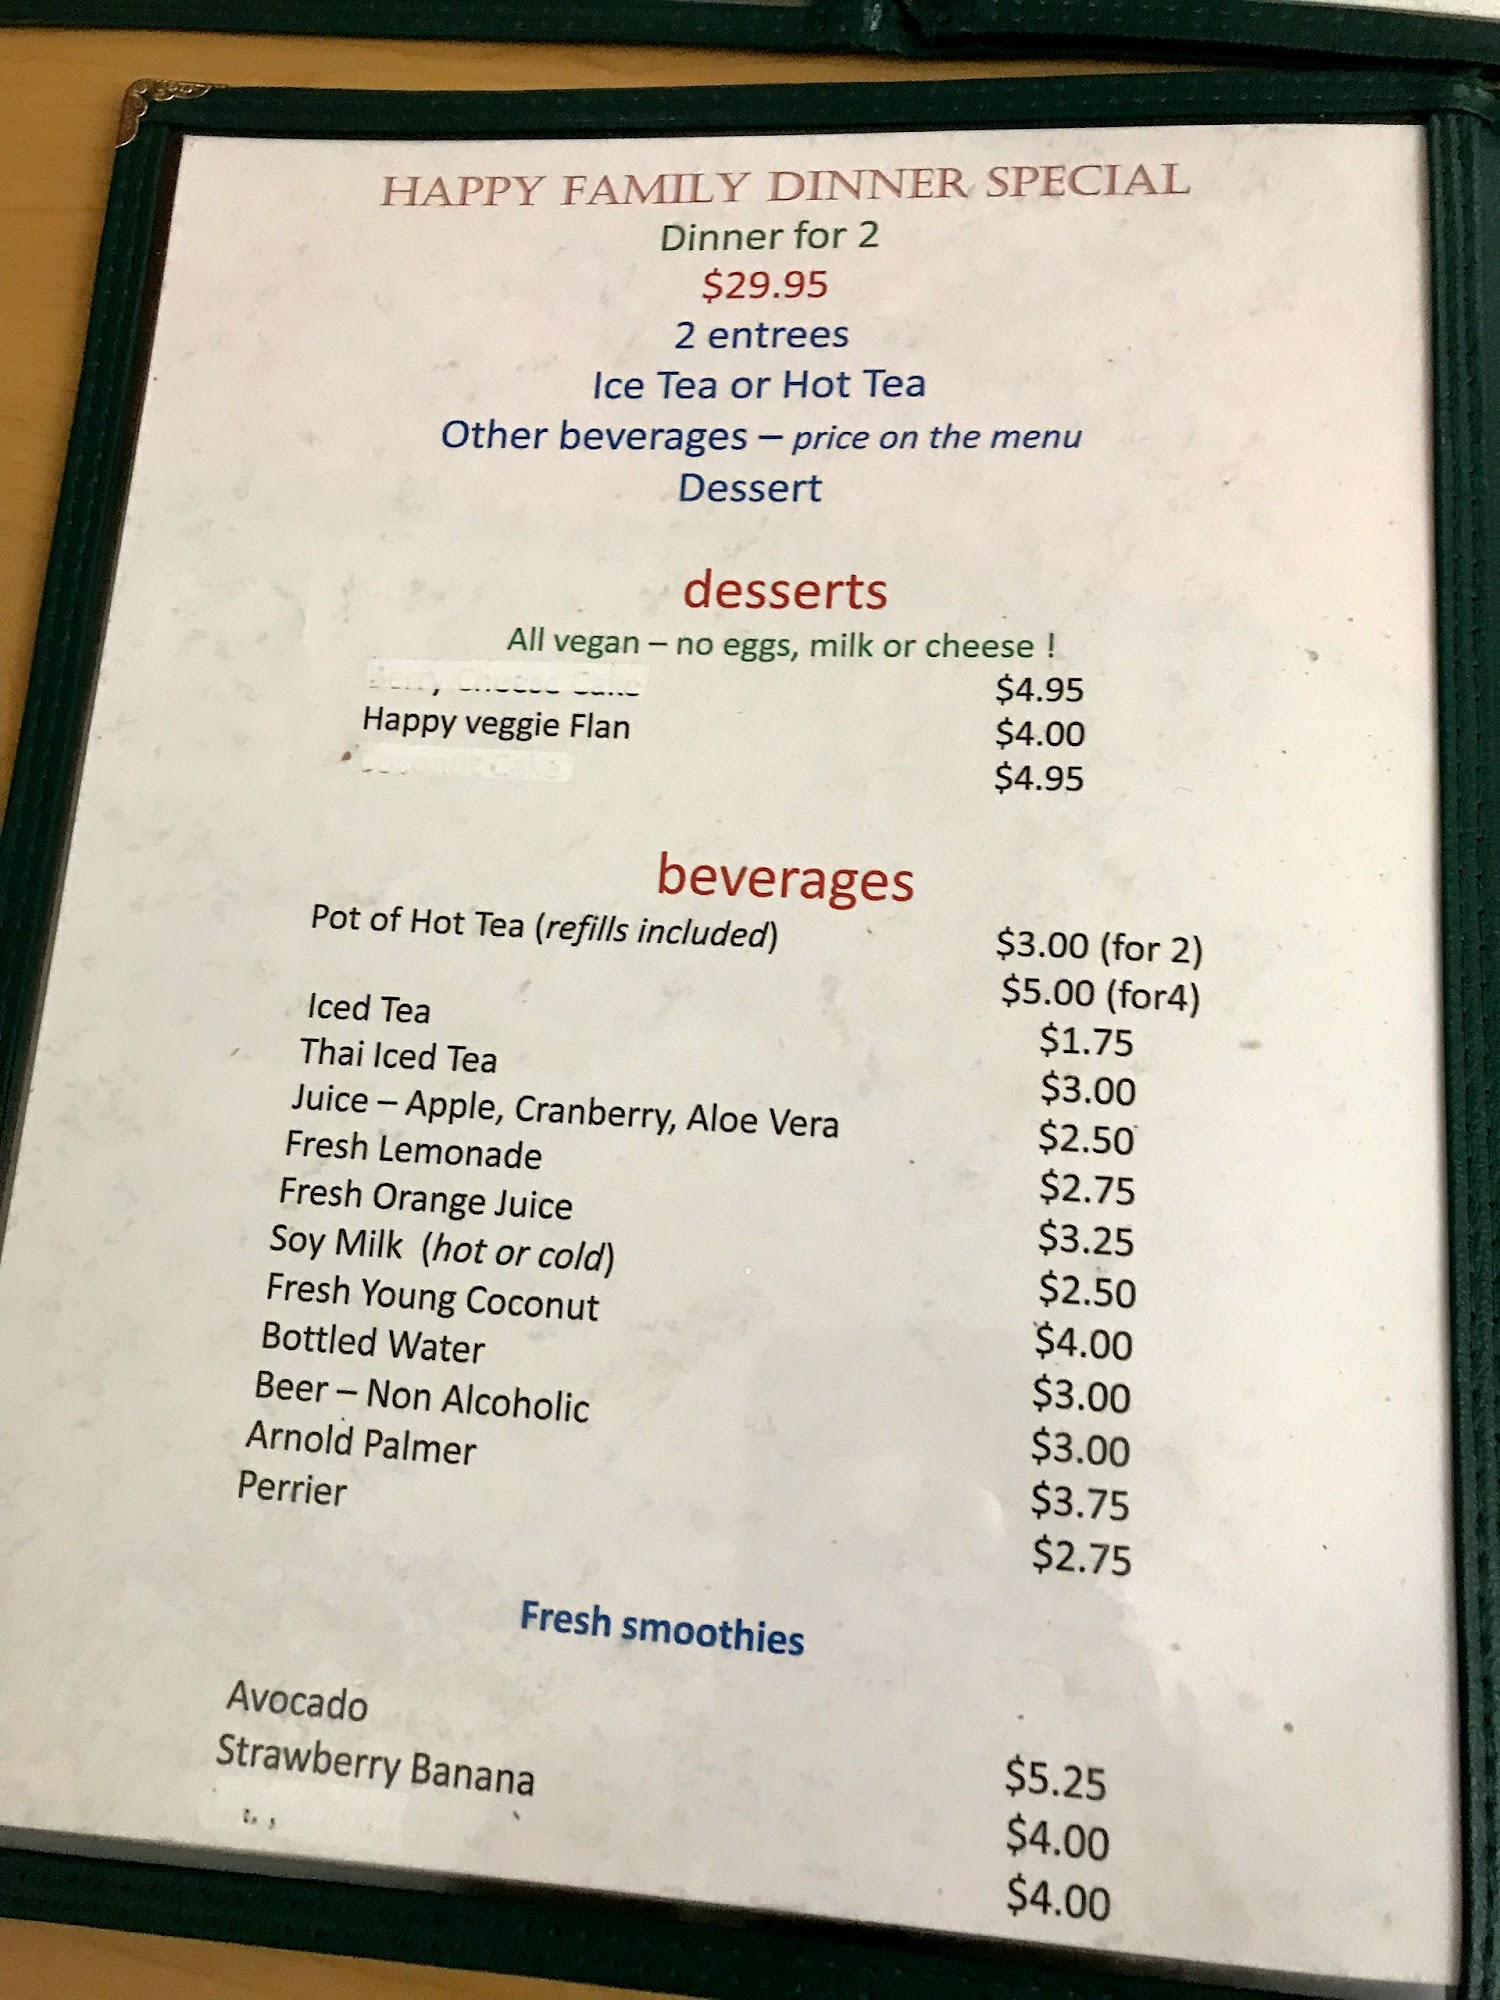 HAPPY FAMILY DINNER SPECIAL
Dinner for 2
$29.95
2 entrees
Ice Tea or Hot Tea
Other beverages – price on the menu
Dessert
desserts
All vegan – no eggs, milk or cheese !
$4.95
Happy veggie Flan $4.00
$4.95
beverages
Pot of Hot Tea (refills included) $3.00 (for 2)
$5.00 (for4)
Iced Tea $1.75
Thai Iced Tea $3.00
Juice – Apple, Cranberry, Aloe Vera $2.50
Fresh Lemonade $2.75
Fresh Orange Juice $3.25
Soy Milk (hot or cold) $2.50
Fresh Young Coconut $4.00
Bottled Water $3.00
Beer – Non Alcoholic $3.00
Arnold Palmer $3.75
Perrier $2.75
Fresh smoothies
Avocado $5.25
Strawberry Banana $4.00
$4.00